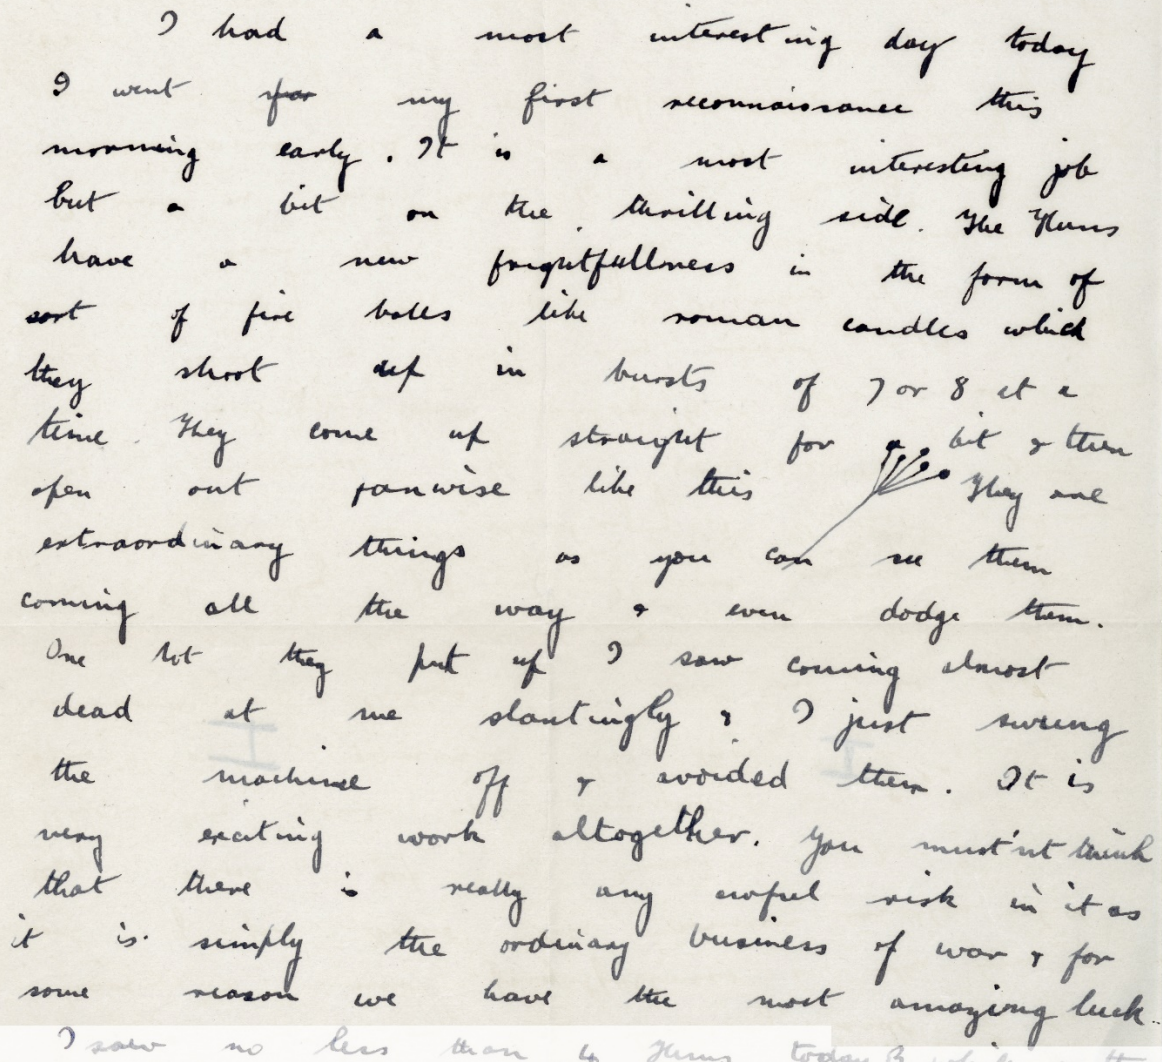 I had a most interesting day today
I went for my first reconnaissance this
morning early. It is a most interesting job
but a bit on the thrilling side. The Huns
have a new frightfullness in the form of
sort of fire balls like roman candles which
they shoot up in bursts of 7 or 8 at a
time. They come up straight for a bit & then
open out fanwise like this They are
extraordinary things as you can see them
coming all the way & even dodge them.
One lot they put up I saw coming almost
dead at me slantingly & I just swung
the machine off & avoided them. It is
very exciting work altogether. You must'nt think
that there is really any awful risk in it as
it is simply the ordinary business of war & for
some reason we have the most amazing luck.
I saw no less than Huns today